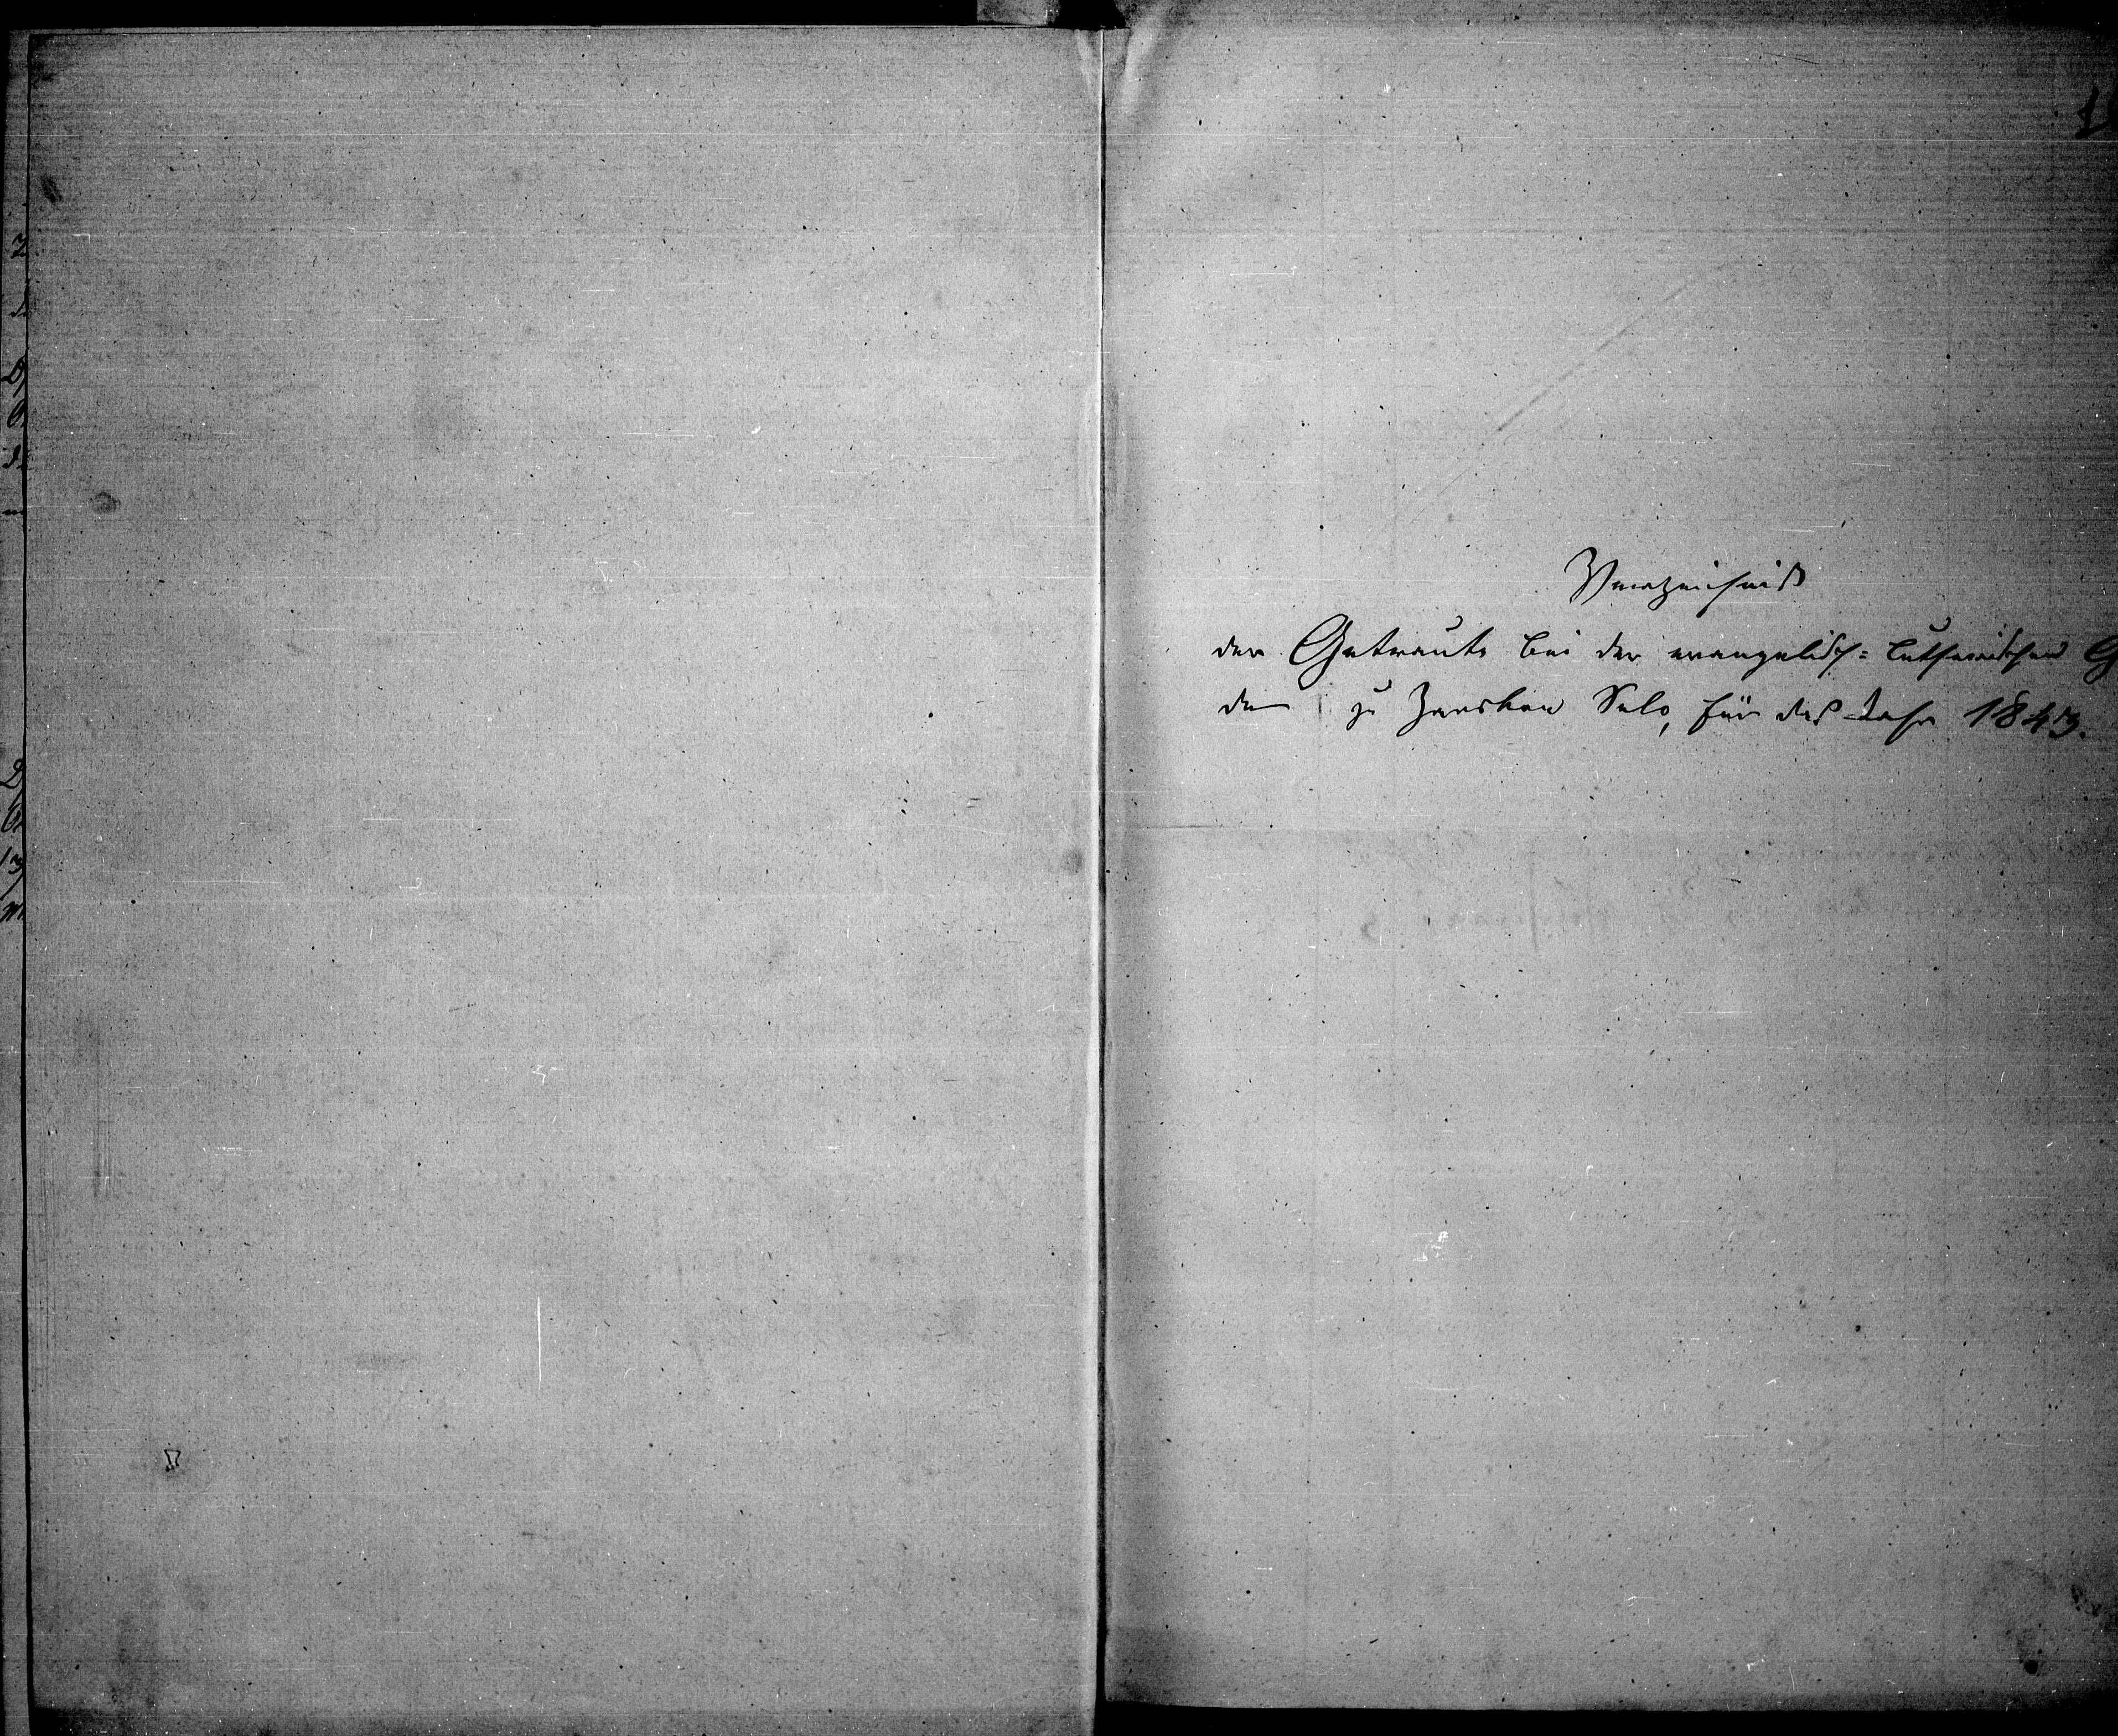 Verzeichniß
der Getraute bei der evangelisch-lutherischen G
de zu Zarskoe Selo, für das Jahr 1843.